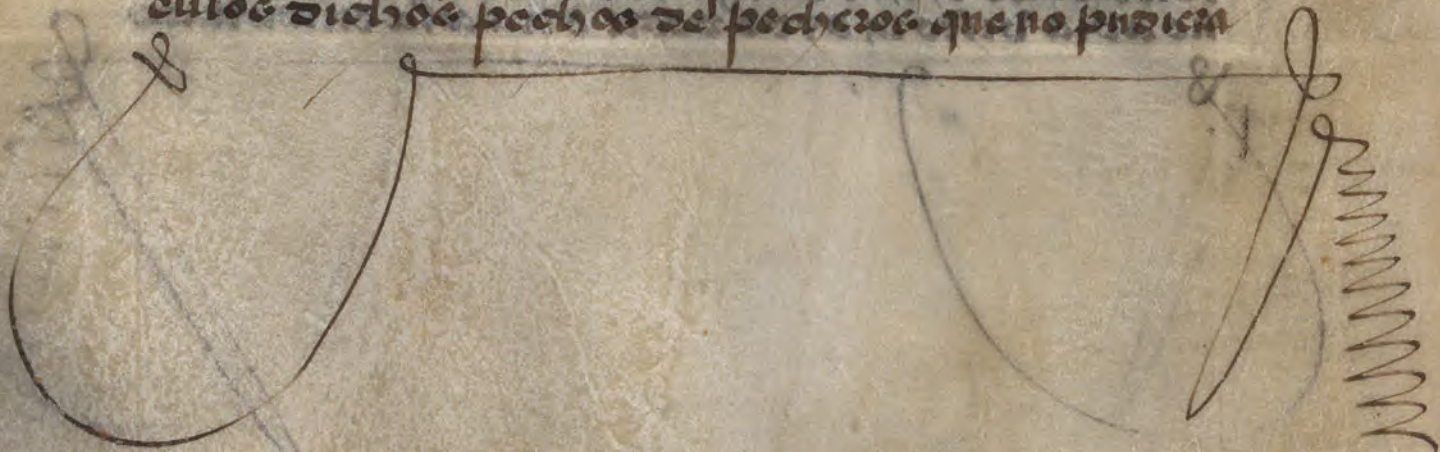 enlos dichos pechos de pecheros que no pudiera